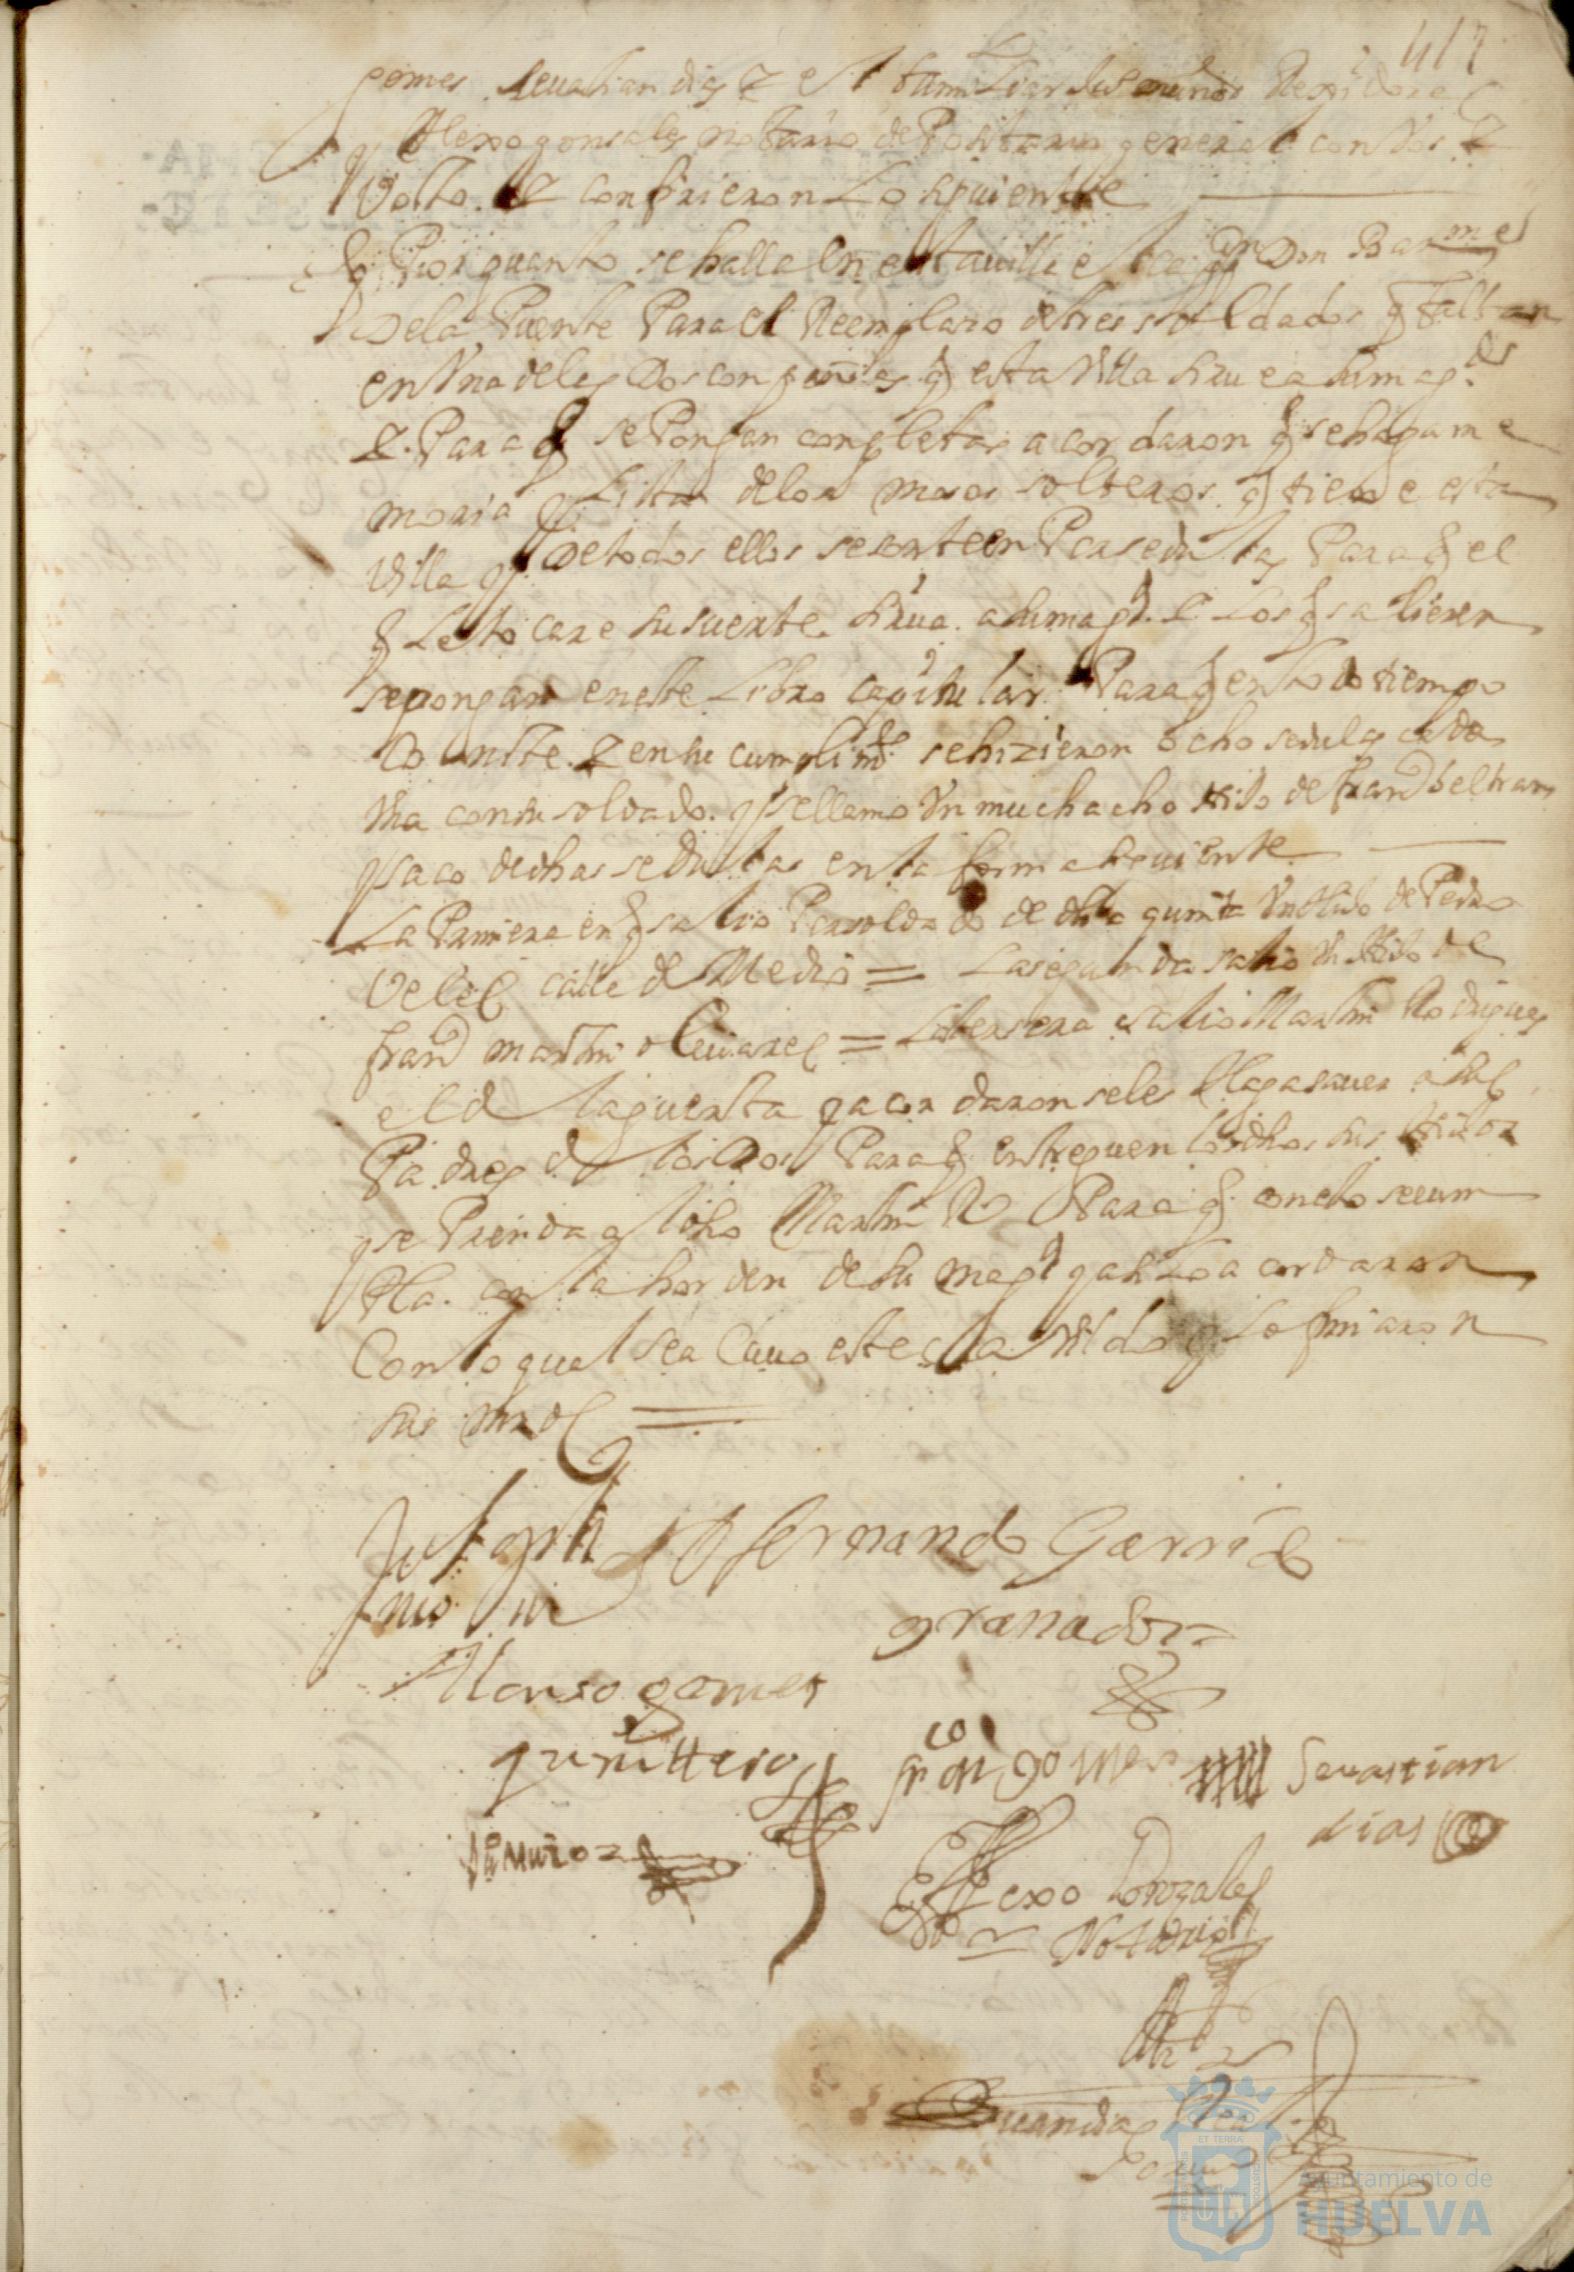 417
gomes sevastian dias y el familiar Juan muños Regidores
Alexo gonsales notario depositario general con vos y
Votto. y confirieron lo siguiente
Por quanto se halla en esta villa el capn Don Barme
de la Puente Para el Reemplaso de tres soldados q faltan
en Vna de las Dos conpañias q esta Villa sirue a su magd
y Para q se Pongan conpletas acordaron q se haga me
moria y Lista de los mosos solteros q tiene esta
Villa y de todos ellos se sorteen Por sedulas Para q el
q le tocare su suerte sirua a su magd. y Los q salieren
se pongan en este Libro capitular Para q en todo tiempo
conste. y en su cumplimto se hizieron ocho sedulas cada
Vna con su soldado. y se llamo Vn muchacho Hijo de franco beltran
y saco dichas sedulas en la forma siguiente
La Primera en q salio Por soldado de dha quinta Vn Hijo de Pedro
Veles calle de Medio = La segunda salio Vn Hijo de
franco martin oliuares = La tersera salio Martin Rodrigues
el de la puerta y acordaron se les Haga sauer a los
Padres de los Dos Para q entreguen los dhos sus Hijos
y se Prenda a dho Martin Ro Para q con ello se cum
Pla. con la horden de su magd y asi lo acordaron
Con lo qual se acauo este cauildo y lo firmaron
sus mrds
Juseph
D fernando Garrido
granados
Alonso gomes
quinttero
franco gomes
Sevastian
dias
Ju Muñoz
Alexo Gonzales
Notario
Ante mi
Juan dias
Ayuntamiento de
HUELVA